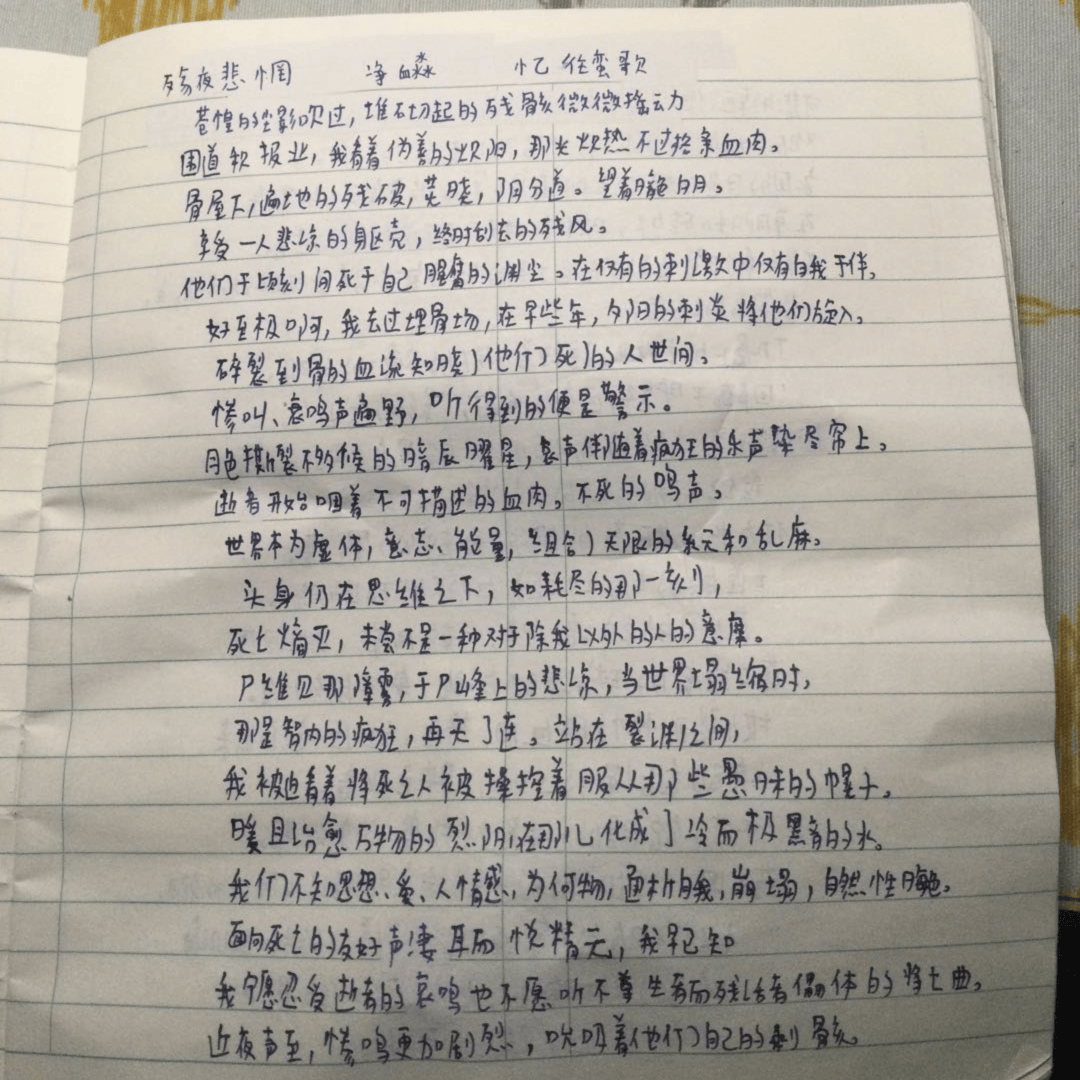 殇夜悲惘 净 忆往蛮歌
苍惶的尘影吹过，堆砌起的残骸微微摇动
围道积报业，我看着伪善的炽阳，那光炽热不过给予血肉。
骨屋下，遍地的残破，荧晓，阴分道。望着月。
享受一人悲凉的身区壳，终时刮去的残风。
他们于顷刻间死于自己腥腐的渊尘。在仅有的刺激中仅有自我于伴。
好至极啊，我去过埋骨场，在早些年，夕阳的刺炎将他们放入。
碎裂到骨的血流知晓他们死的人世间。
惨叫、哀鸣声遍野，听得到的便是警示。
月色撕裂不够候的暗辰曜星，哀声伴随着疯狂的乐声染尽帘上。
逝者开始咽着不可描述的血肉。不死的鸣声。
世界本为虚体，意志、能量，组合无限的系元和乱麻。
头身仍在思维之下，如耗尽的那一刻，
死亡熵灭，未尝不是一种对于除我以外的人的意。
户维贝那障雾，于户峰上的悲凉，当世界塌缩时，
那是智内的疯狂，再无了连。站在裂渊之间，
我被迫看着将死之人被操控着服从那些愚昧的幌子。
暖且治愈万物的烈阴，在那儿化成了冷而极黑暗的水。
我们不知思想、爱、人情感，为何物，通析自我，崩塌，自然性。
面向死亡的友好声凄耳而悦精元，我早已知
我宁愿忍受逝者的哀鸣也不愿听不尊生者而残活者傀体的将亡曲。
近夜声至，惨鸣更加剧烈，吮吸着他们自己的刺骸。